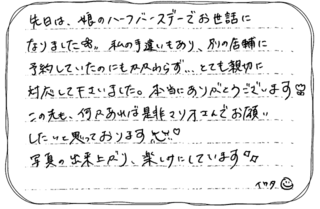 先日は、娘のハーフバースデーでお世話に
なりました 私の手違いもあり、別の店舗に
予約していたのにも関わらず…とても親切に
対応して下さいました。本当にありがとうございます
この先も、何かあれば是非スタジオさんでお願い
したいと思っております
写真の出来上がり、楽しみにしています